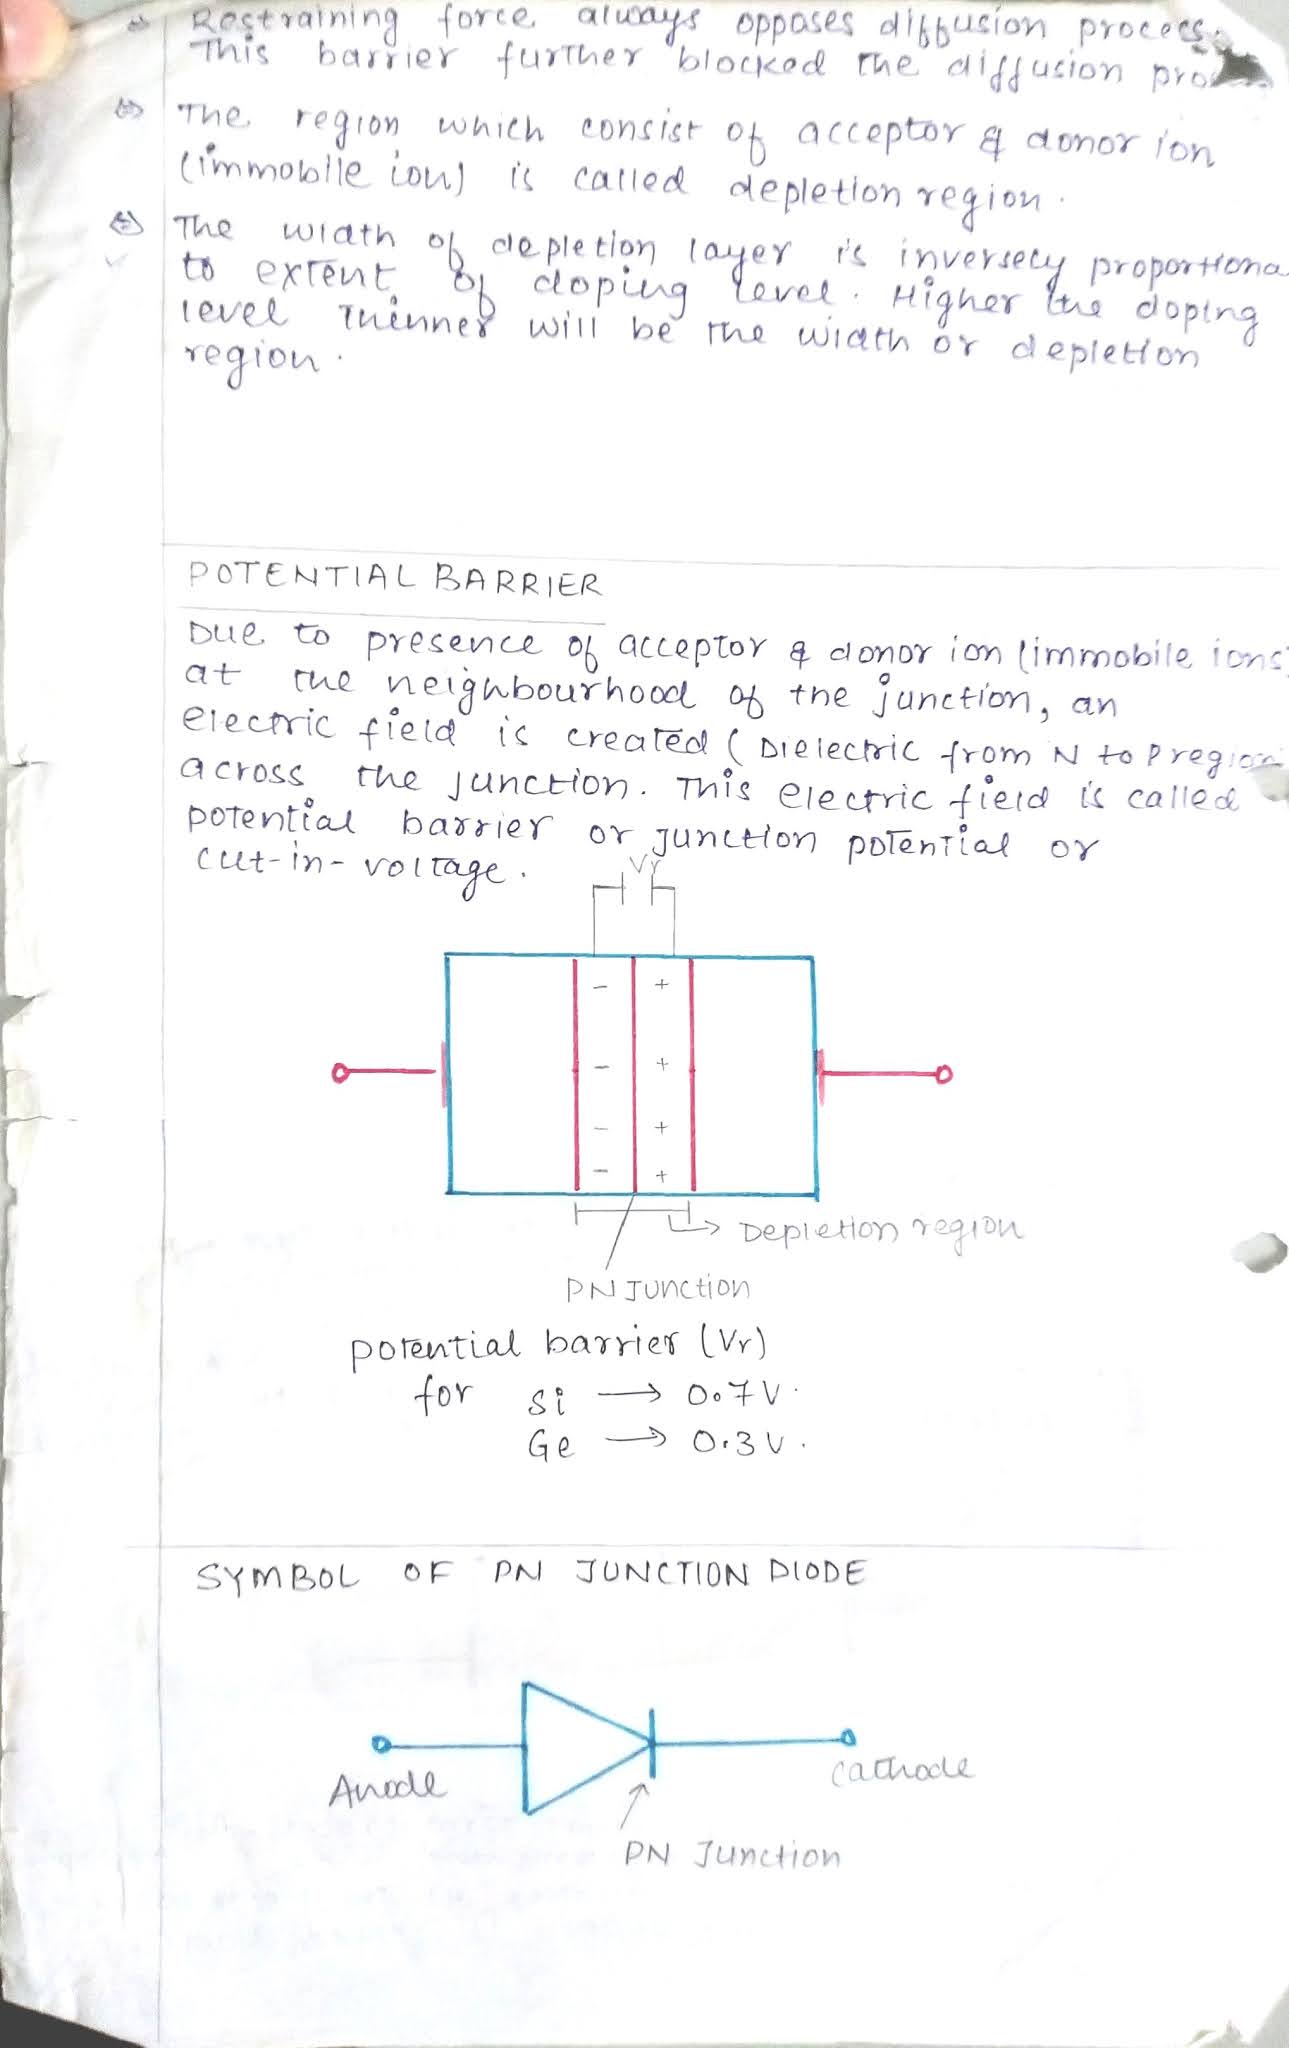 Restraining force always opposes diffusion process.
This barrier further blocked the diffusion
The region which consist of acceptor & donor ion
(immobile ion) is called depletion region.
The width of depletion layer is inversely proportiona
to extent of doping level. Higher the doping
level Thinner will be the width or depletion
region.
POTENTIAL BARRIER
Due to presence of acceptor & donor ion (immobile ions)
at the neighbourhood of the junction, an
electric field is created (Dielectric from N to P region
across the junction. This electric field is called
potential barrier or junction potential or
cut-in-voltage.
Vr
- +
- +
- +
- +
Depletion region
PN Junction
potential barrier (Vr)
for Si → 0.7V.
Ge → 0.3V.
SYMBOL OF PN JUNCTION DIODE
Anode
Cathode
PN Junction